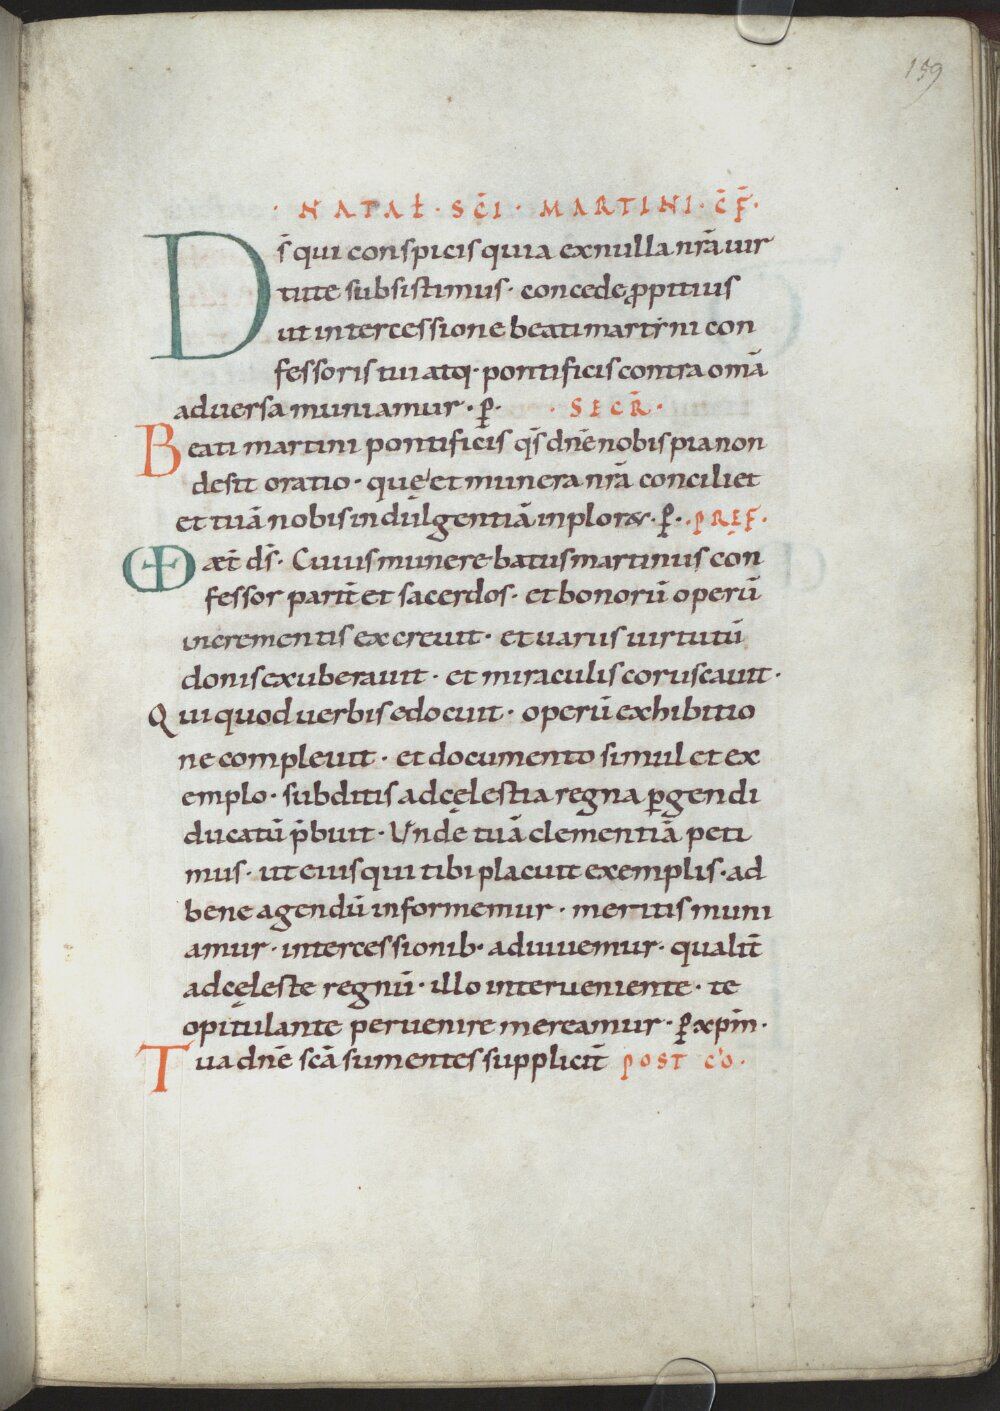 159
· NATAƚ · SC̄I · MARTINI · C̄F̄ ·
Ds̄ qui conspicis quia exnulla nr̄a uir
tute subsistimus · concede ꝓpitius
ut intercessione beati martini con
fessoris tui atq· pontificis contra om̄a
aduersa muniamur · p̱ · · SECR̄ ·
Beati martini pontificis qs̄ dn̄e nobis pia non
desit oratio · quę et munera nr̄a conciliet
et tuā nobis indulgentiā inploræ · p̱ · · PREF ·
VD æt̄ ds̄ · Cuius munere batus martinus con
fessor parit̄ et sacerdos · et bonorū operū
incrementis excreuit · et uariis uirtutū
donis exuberauit · et miraculis coruscauit ·
Qui quod uerbis edocuit · operū exhibitio
ne compleuit · et documento simul et ex
emplo · subditis ad cęlestia regna ꝑgendi
ducatū p̄buit · Unde tuā clementiā peti
mus · ut eius qui tibi placuit exemplis · ad
bene agendū informemur · meritis muni
amur · intercessionib· adiuuemur · qualit̄
ad cęleste regnū · illo interueniente · te
opitulante peruenire mereamur · p̱ xp̄m ·
Tua dn̄e sc̄a sumentes supplicit̄ POST CO ·